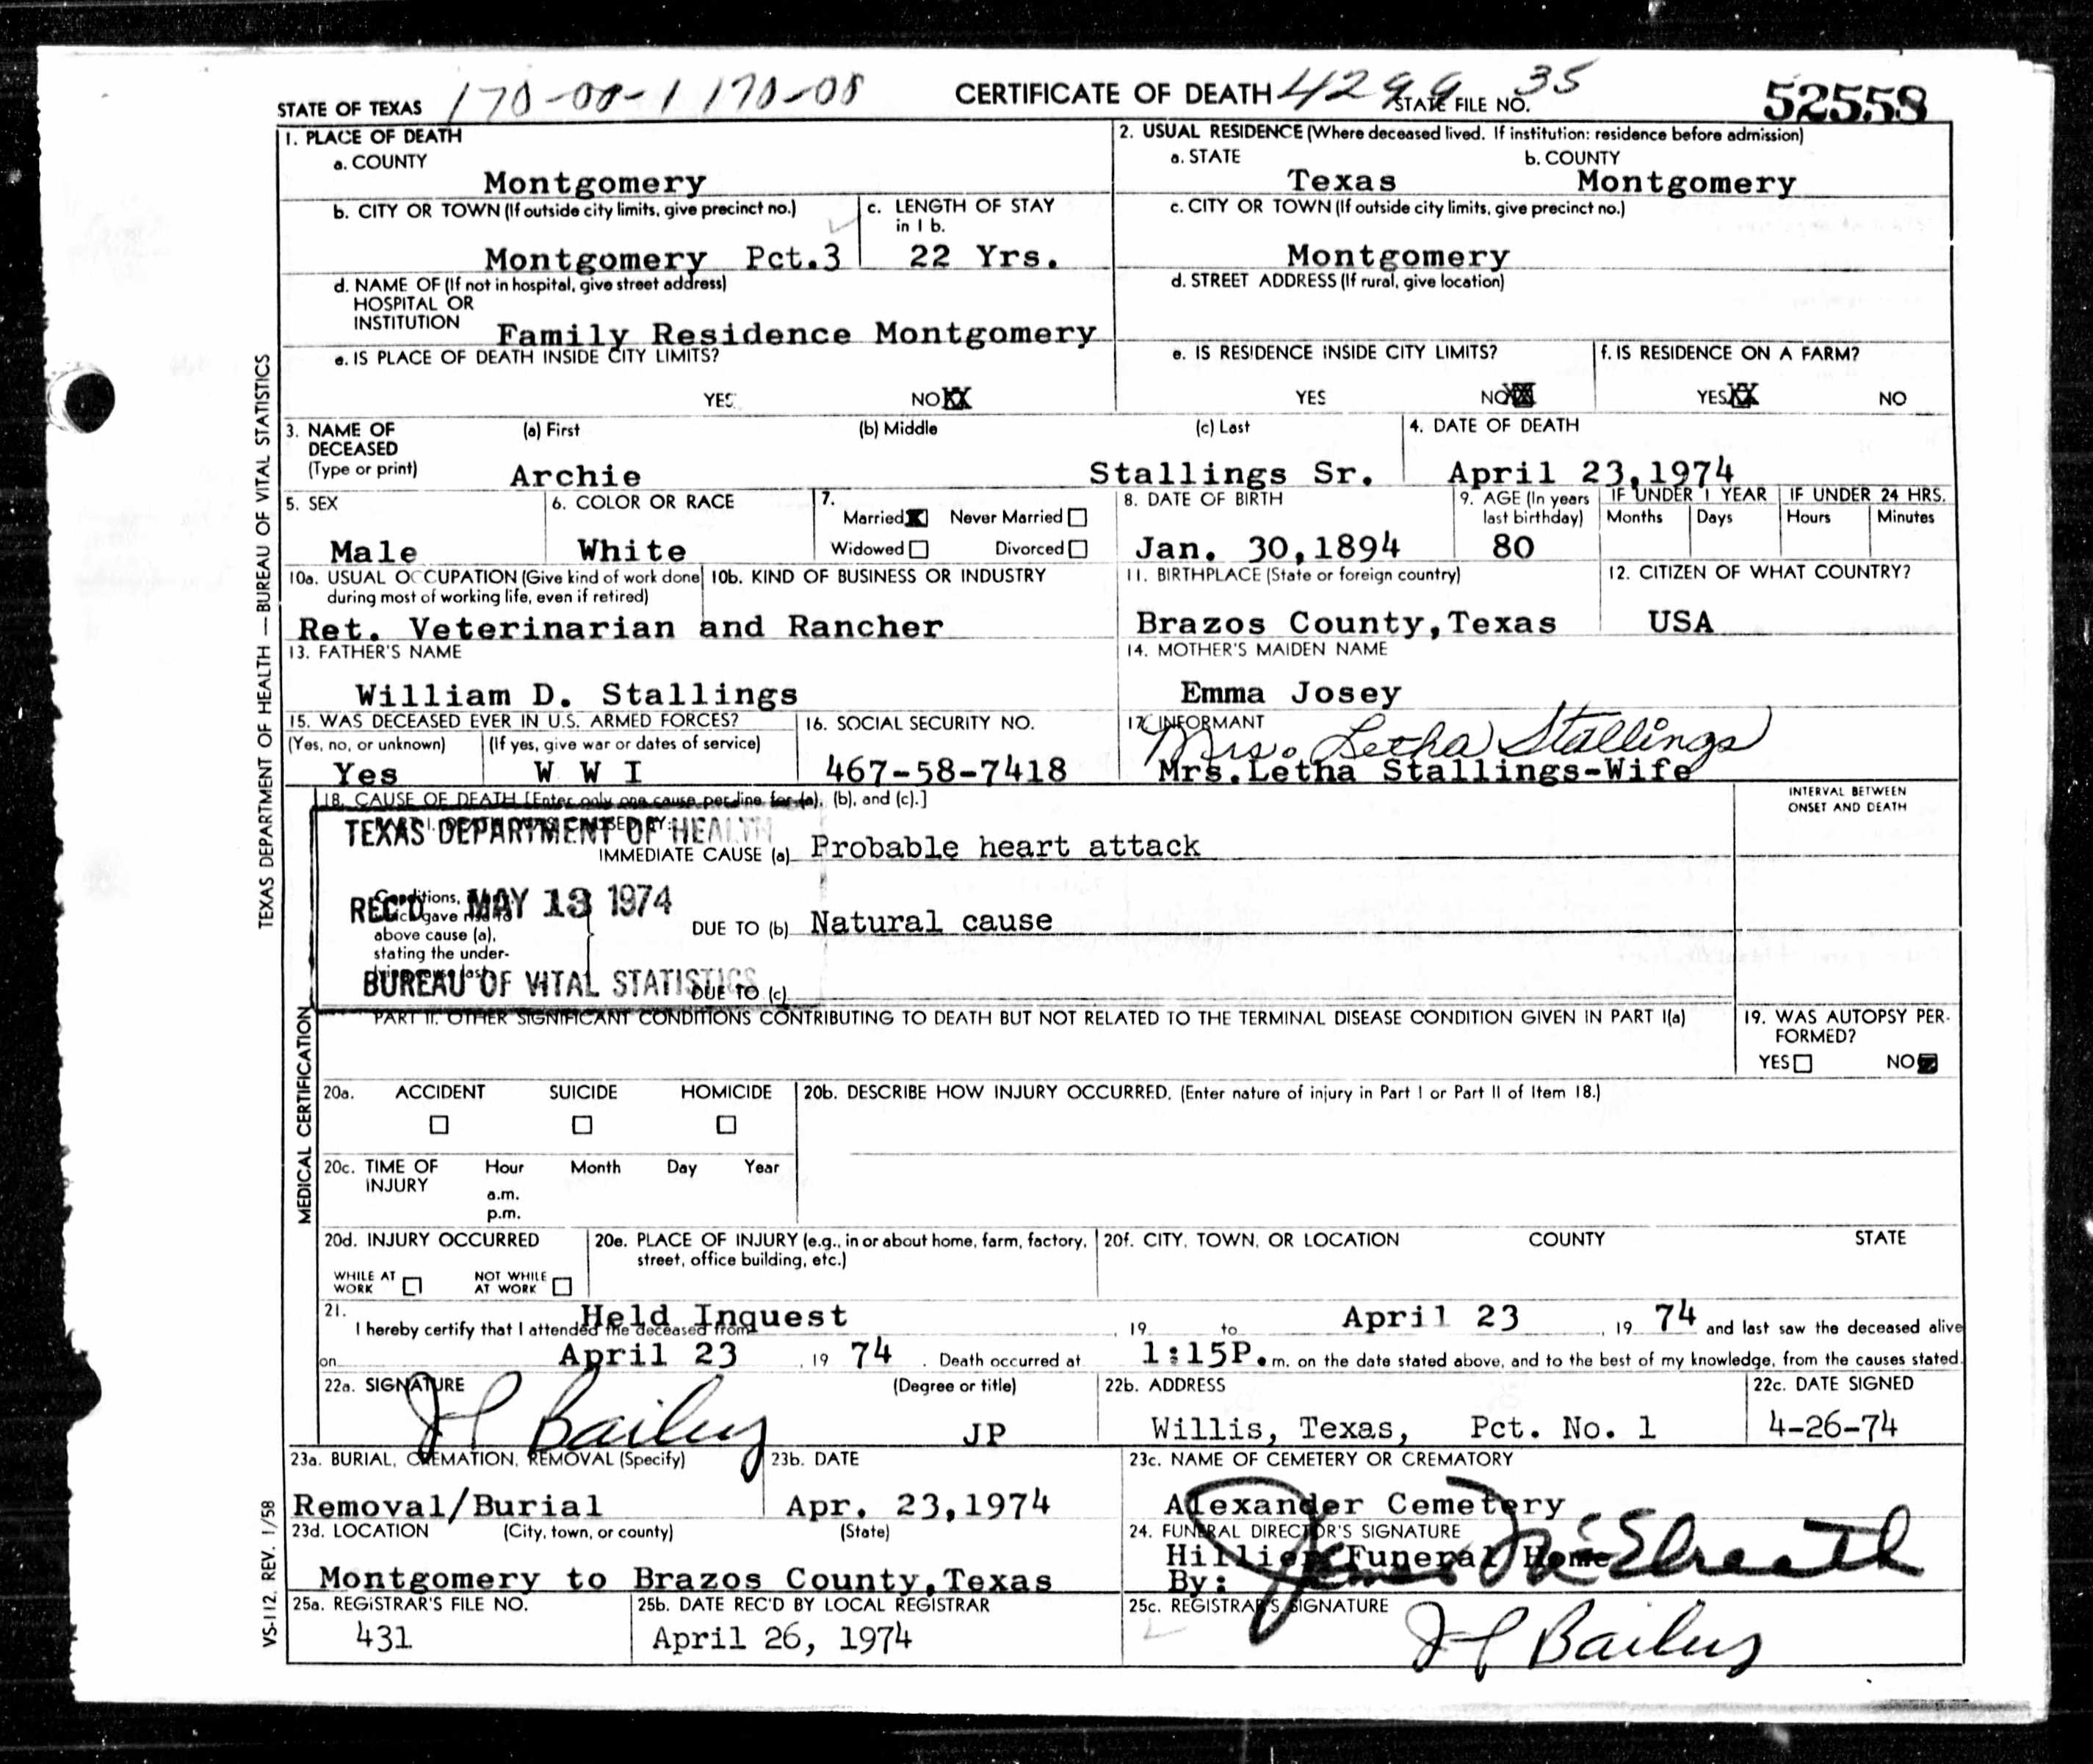 STATE OF TEXAS 170-00-1 170-08 CERTIFICATE OF DEATH 4299 STATE FILE NO. 35 52558
1. PLACE OF DEATH
a. COUNTY
Montgomery
b. CITY OR TOWN (If outside city limits, give precinct no.)
Montgomery Pct.3
c. LENGTH OF STAY in 1 b.
22 Yrs.
d. NAME OF (If not in hospital, give street address)
HOSPITAL OR
INSTITUTION
Family Residence Montgomery
e. IS PLACE OF DEATH INSIDE CITY LIMITS?
YES NO XX
2. USUAL RESIDENCE (Where deceased lived. If institution: residence before admission)
a. STATE b. COUNTY
Texas Montgomery
c. CITY OR TOWN (If outside city limits, give precinct no.)
Montgomery
d. STREET ADDRESS (If rural, give location)
e. IS RESIDENCE INSIDE CITY LIMITS?
YES NO XX
f. IS RESIDENCE ON A FARM?
YES XX NO
3. NAME OF DECEASED (Type or print)
(a) First (b) Middle (c) Last
Archie Stallings Sr.
4. DATE OF DEATH
April 23,1974
5. SEX
Male
6. COLOR OR RACE
White
7.
Married X Never Married
Widowed Divorced
8. DATE OF BIRTH
Jan. 30,1894
9. AGE (In years last birthday)
80
IF UNDER 1 YEAR
Months Days
IF UNDER 24 HRS.
Hours Minutes
10a. USUAL OCCUPATION (Give kind of work done during most of working life, even if retired)
10b. KIND OF BUSINESS OR INDUSTRY
Ret. Veterinarian and Rancher
11. BIRTHPLACE (State or foreign country)
Brazos County,Texas
12. CITIZEN OF WHAT COUNTRY?
USA
13. FATHER'S NAME
William D. Stallings
14. MOTHER'S MAIDEN NAME
Emma Josey
15. WAS DECEASED EVER IN U.S. ARMED FORCES?
(Yes, no, or unknown) (If yes, give war or dates of service)
Yes W W I
16. SOCIAL SECURITY NO.
467-58-7418
17. INFORMANT
Mrs. Letha Stallings
Mrs.Letha Stallings-Wife
18. CAUSE OF DEATH [Enter only one cause per line for (a), (b), and (c).]
INTERVAL BETWEEN
ONSET AND DEATH
TEXAS DEPARTMENT OF HEALTH
IMMEDIATE CAUSE (a) Probable heart attack
REC'D MAY 13 1974
above cause (a),
stating the under-
DUE TO (b) Natural cause
BUREAU OF VITAL STATISTICS
DUE TO (c)
PART II. OTHER SIGNIFICANT CONDITIONS CONTRIBUTING TO DEATH BUT NOT RELATED TO THE TERMINAL DISEASE CONDITION GIVEN IN PART I(a)
19. WAS AUTOPSY PER-
FORMED?
YES NO
20a. ACCIDENT SUICIDE HOMICIDE
20b. DESCRIBE HOW INJURY OCCURRED. (Enter nature of injury in Part I or Part II of Item 18.)
20c. TIME OF INJURY Hour Month Day Year
a.m.
p.m.
20d. INJURY OCCURRED
WHILE AT WORK NOT WHILE AT WORK
20e. PLACE OF INJURY (e.g., in or about home, farm, factory, street, office building, etc.)
20f. CITY, TOWN, OR LOCATION COUNTY STATE
21.
I hereby certify that I attended the deceased from Held Inquest , 19 to April 23 , 19 74 and last saw the deceased alive
on April 23 , 19 74 . Death occurred at 1:15P. m. on the date stated above, and to the best of my knowledge, from the causes stated.
22a. SIGNATURE (Degree or title)
J P Bailey JP
22b. ADDRESS
Willis, Texas, Pct. No. 1
22c. DATE SIGNED
4-26-74
23a. BURIAL, CREMATION, REMOVAL (Specify)
Removal/Burial
23b. DATE
Apr. 23,1974
23c. NAME OF CEMETERY OR CREMATORY
Alexander Cemetery
23d. LOCATION (City, town, or county) (State)
Montgomery to Brazos County,Texas
24. FUNERAL DIRECTOR'S SIGNATURE
Hillier Funeral Home
By: James McElreath
25a. REGISTRAR'S FILE NO.
431
25b. DATE REC'D BY LOCAL REGISTRAR
April 26, 1974
25c. REGISTRAR'S SIGNATURE
J P Bailey
TEXAS DEPARTMENT OF HEALTH — BUREAU OF VITAL STATISTICS
MEDICAL CERTIFICATION
VS-112. REV. 1/58